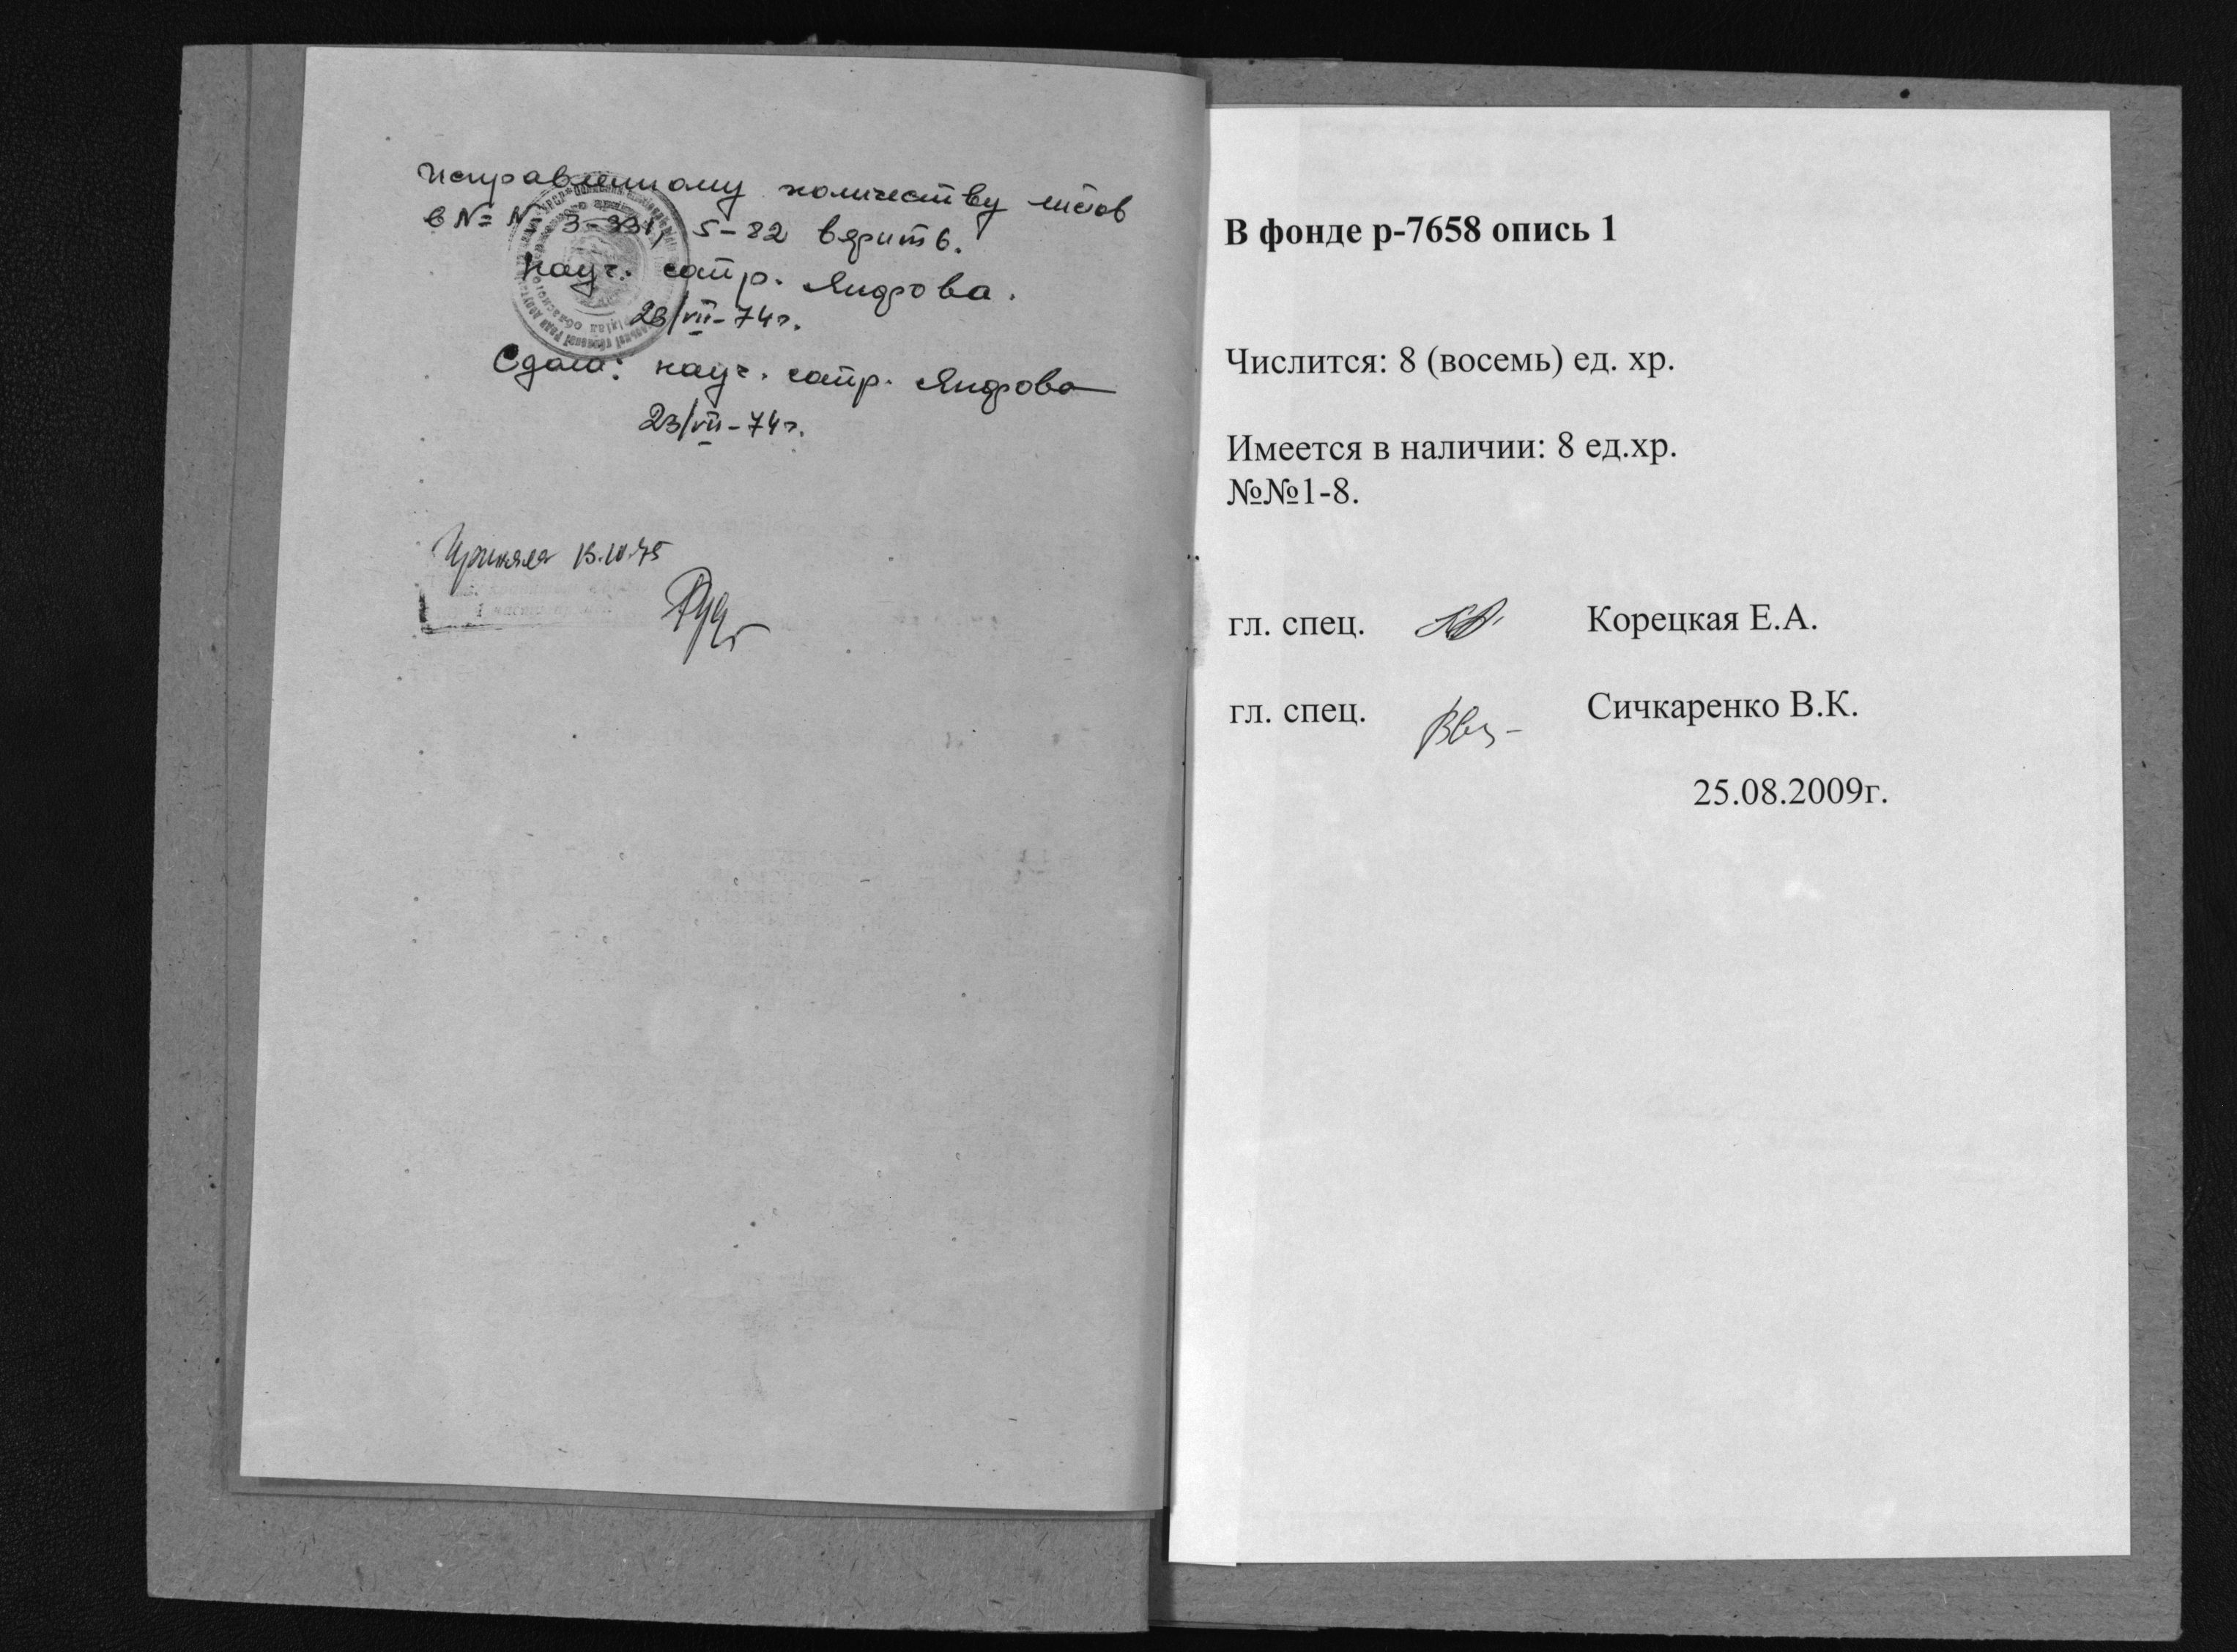 Исправленному количеству листов
в №№ 3-331, 5-82 верить.
Науч. сотр. Яндрова.
23/VII-74г.
Сдала: науч. сотр. Яндрова
23/VII-74г.
Приняла
В фонде р-7658 опись 1
Числится: 8 (восемь) ед. хр.
Имеется в наличии: 8 ед.хр.
№№1-8.
гл. спец. Корецкая Е.А.
гл. спец. Сичкаренко В.К.
25.08.2009г.